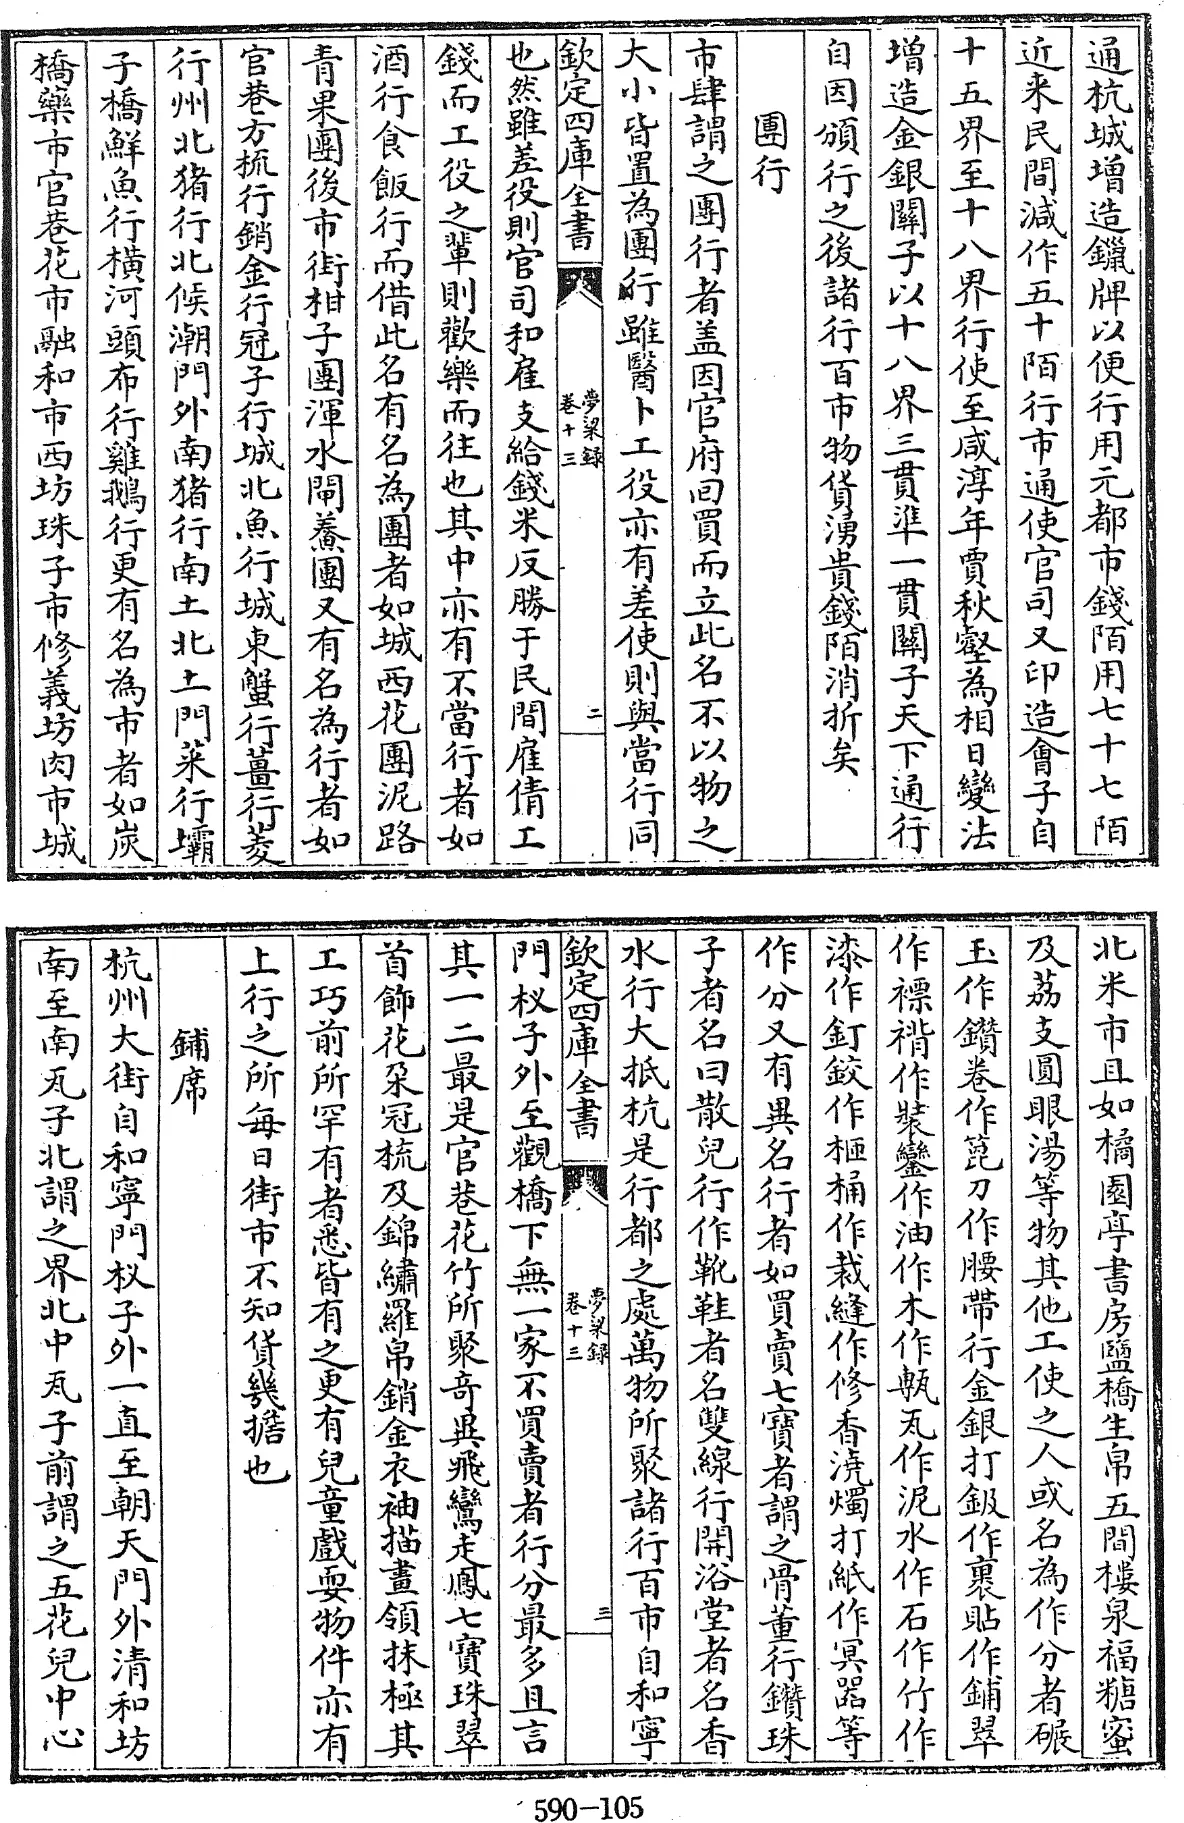 通杭城增造鑞牌以便行用元都市錢陌用七十七陌
近来民間減作五十陌行市通使官司又印造會子自
十五界至十八界行使至咸淳年賈秋壑為相日變法
增造金銀關子以十八界三貫準一貫關子天下通行
自因頒行之後諸行百市物貨湧貴錢陌消折矣
團行
市肆謂之團行者盖因官府回買而立此名不以物之
大小皆置為團行雖醫卜工役亦有差使則與當行同
欽定四庫全書
夢梁録
卷十三
二
也然雖差役則官司和雇支給錢米反勝于民間雇倩工
錢而工役之輩則歡樂而往也其中亦有不當行者如
酒行食飯行而借此名有名為團者如城西花團泥路
青果團後市街柑子團渾水閘鯗團又有名為行者如
官巷方梳行銷金行冠子行城北魚行城東蟹行薑行菱
行州北猪行北候潮門外南猪行南土北土門菜行壩
子橋鮮魚行横河頭布行雞鵝行更有名為市者如炭
橋藥市官巷花市融和市西坊珠子市修義坊肉市城
北米市且如橘園亭書房鹽橋生帛五間樓泉福糖蜜
及荔支圓眼湯等物其他工使之人或名為作分者碾
玉作鑽卷作箆刀作腰帶行金銀打鈒作裹貼作鋪翠
作褾褙作裝鑾作油作木作甎瓦作泥水作石作竹作
漆作釘鉸作柜桶作裁縫作修香澆燭打紙作冥器等
作分又有異名行者如買賣七寶者謂之骨董行鑽珠
子者名曰散兒行作靴鞋者名雙線行開浴堂者名香
水行大抵杭是行都之處萬物所聚諸行百市自和寧
欽定四庫全書
夢梁録
卷十三
三
門杈子外至觀橋下無一家不買賣者行分最多且言
其一二最是官巷花竹所聚奇異飛鸞走鳳七寶珠翠
首飾花朶冠梳及錦繡羅帛銷金衣袖描畫領抹極其
工巧前所罕有者悉皆有之更有兒童戲耍物件亦有
上行之所每日街市不知貨幾擔也
鋪席
杭州大街自和寧門杈子外一直至朝天門外清和坊
南至南瓦子北謂之界北中瓦子前謂之五花兒中心
590-105